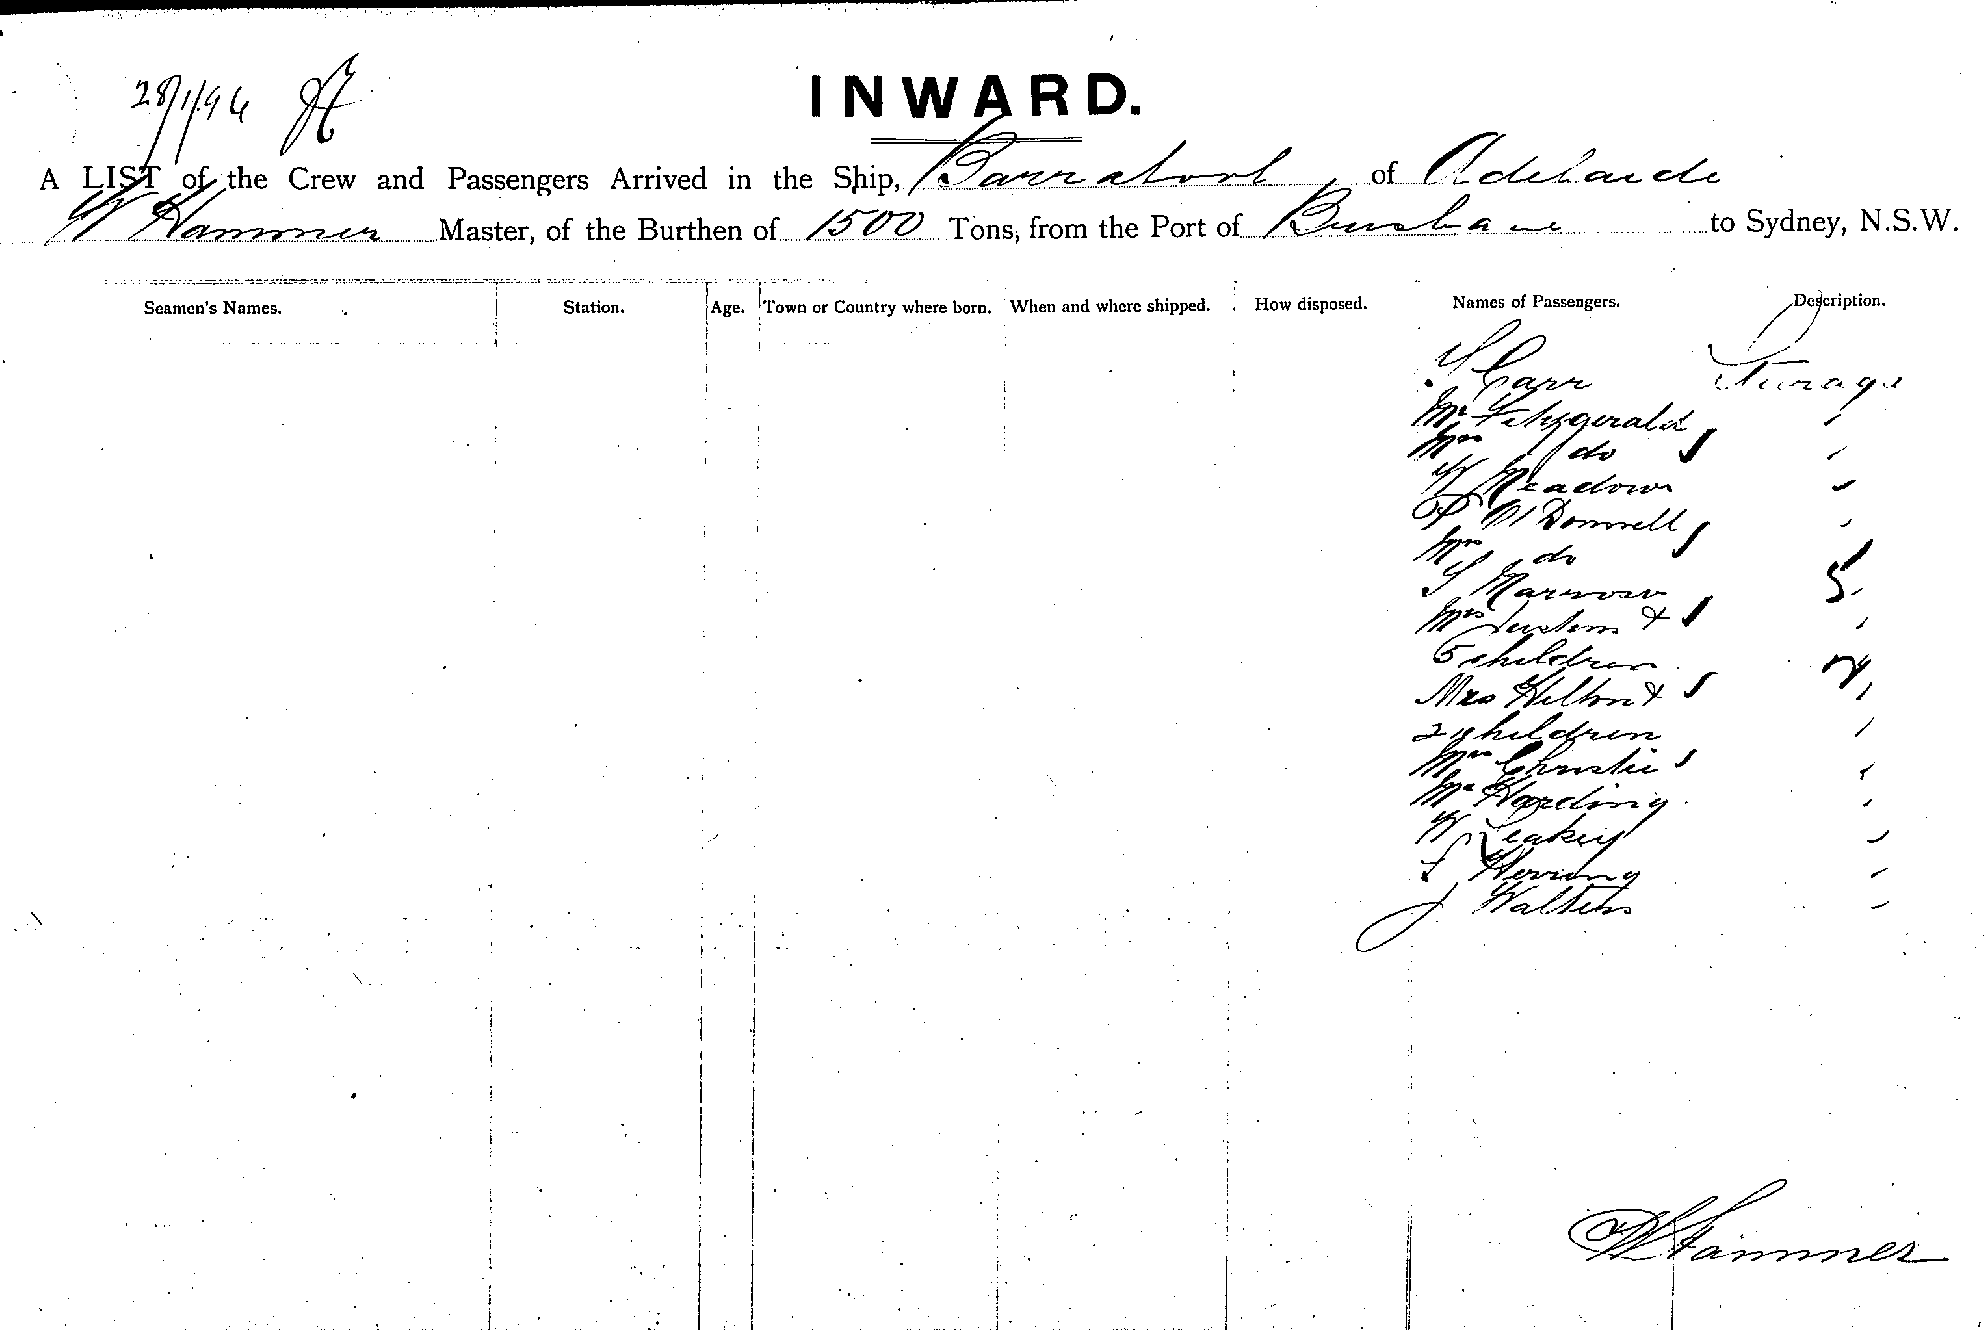 28/1/96
INWARD.
A LIST of the Crew and Passengers Arrived in the Ship, Barrabool of Adelaide
W Hammer Master, of the Burthen of 1500 Tons, from the Port of Brisbane to Sydney, N.S.W.
Seamen's Names. Station. Age. Town or Country where born. When and where shipped. How disposed. Names of Passengers. Description.
S Carr Sturage
Mr Fitzgerald "
Mrs do "
W Meadows "
P O'Donnell "
Mrs do
S "
Mrs & "
5 children
Mrs Hilton & "
2 children "
Mrs Christie "
Mr Harding "
W Leakey "
F Herring "
J Walters "
W Hammer